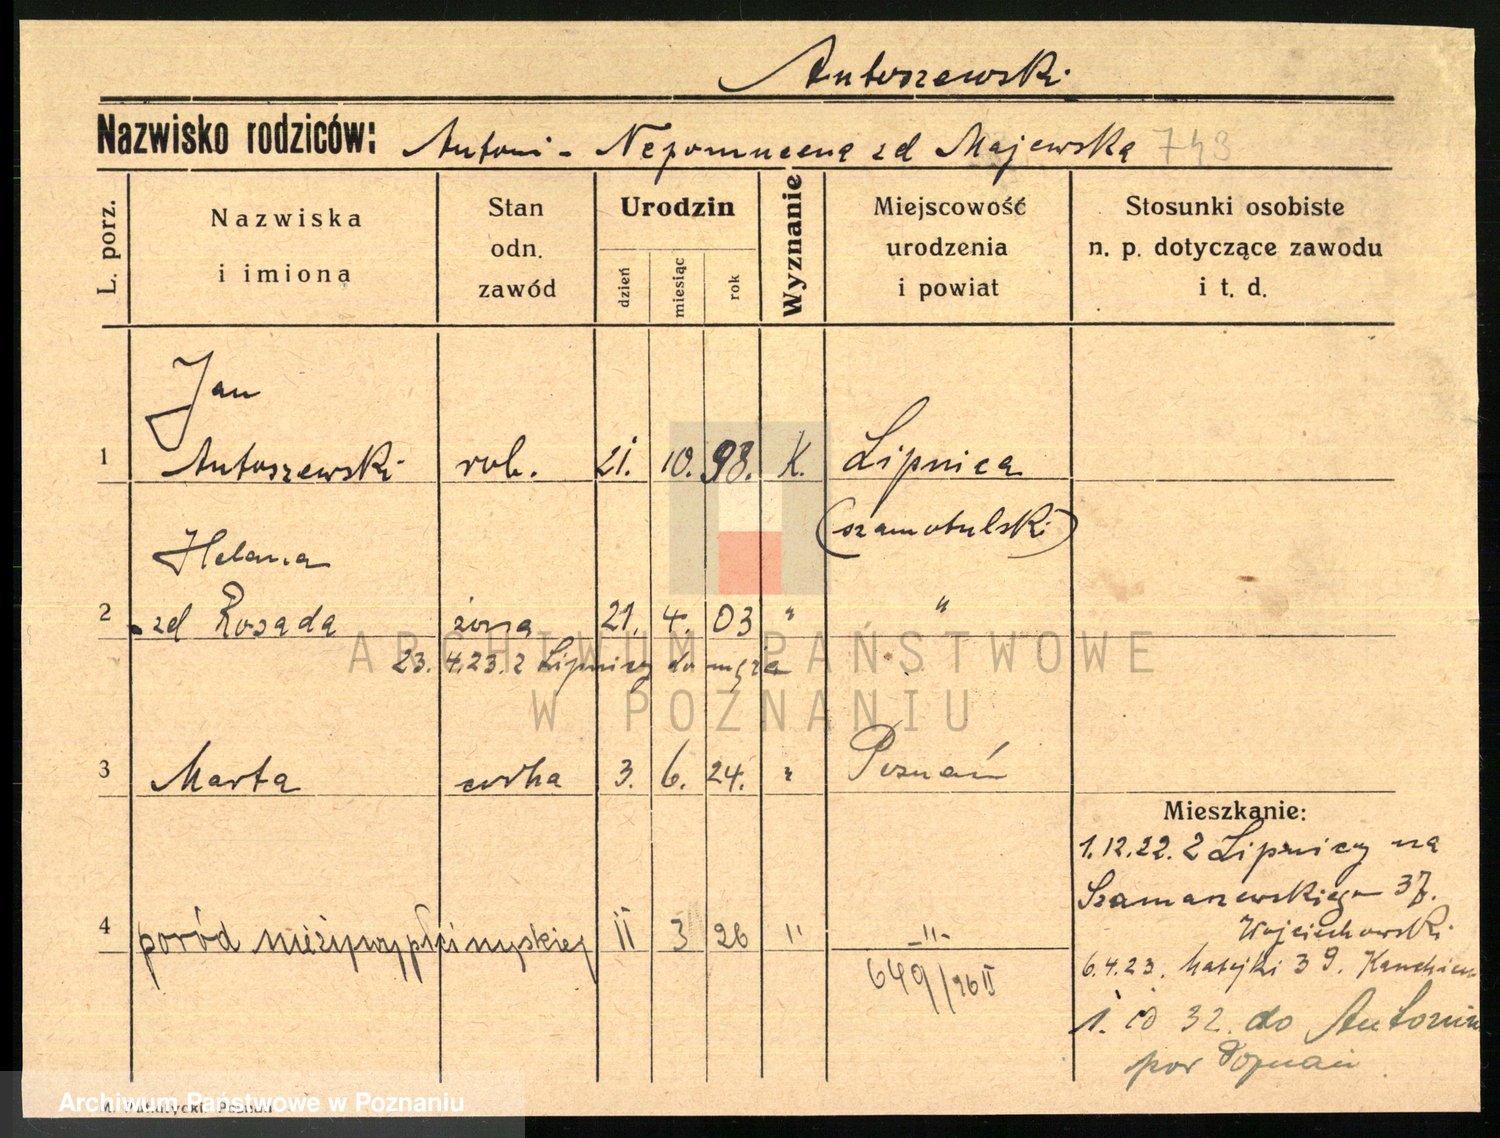 Antoszewski
Nazwisko rodziców: Antoni - Nepomucena zd Majewska 743
L. porz.
Nazwiska i imiona
Stan odn. zawód
Urodzin
dzień miesiąc rok
Wyznanie
Miejscowość urodzenia i powiat
Stosunki osobiste n. p. dotyczące zawodu i t. d.
Jan
1 Antoszewski rob. 21. 10. 98. K. Lipnica
(szamotulski)
Helena
2 zd Rosada żona 21. 4. 03 " "
23. 4. 23. z Lipnicy do męża
3 Marta córka 3. 6. 24. " Poznań
4 poród nieżywy płci męskiej II 3 26 " -"-
649/26 II
Mieszkanie:
1.12.22. z Lipnicy na
Szamarzewskiego 37.
Wojciechowski
6.4.23. Matejki 39.
1. 32. do
por Poznań
ARCHIWUM PAŃSTWOWE
W POZNANIU
Archiwum Państwowe w Poznaniu